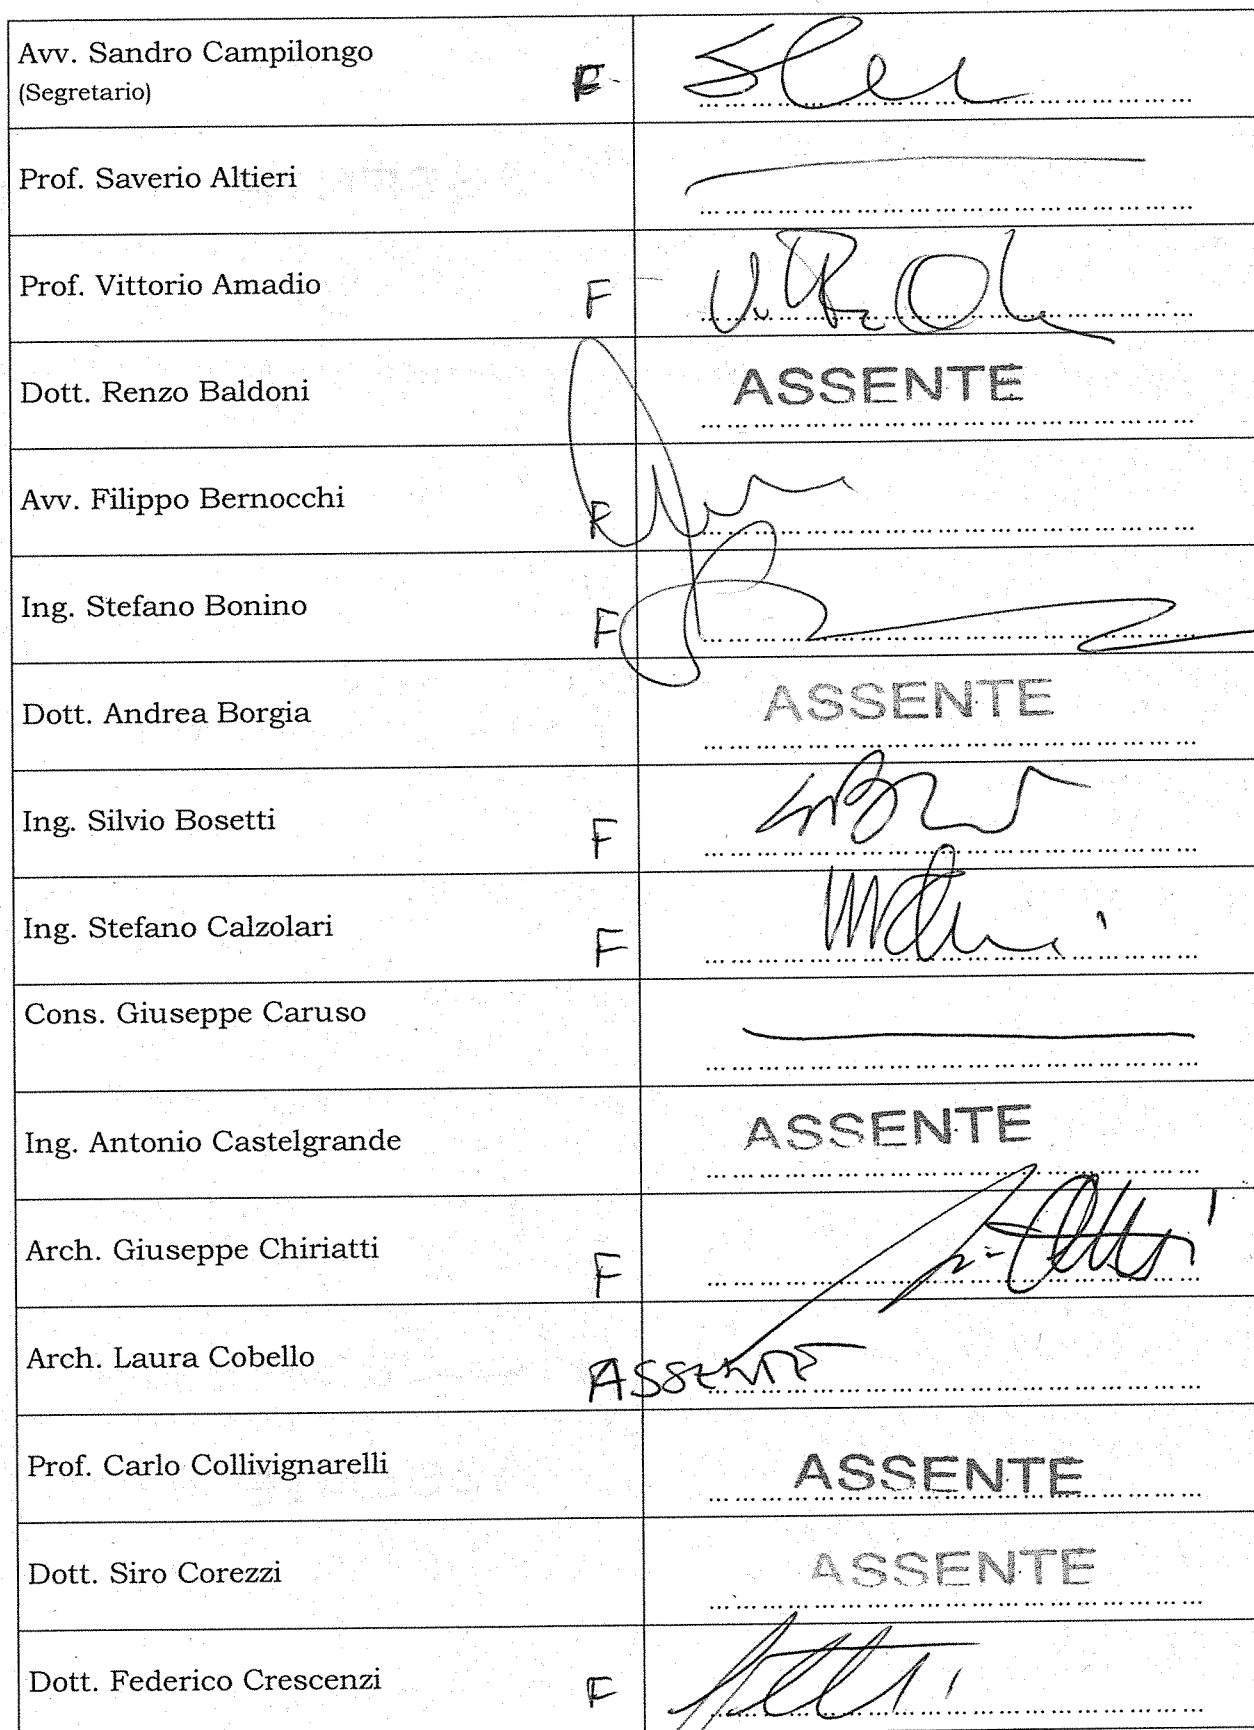 Avv. Sandro Campilongo
(Segretario) F
Prof. Saverio Altieri
Prof. Vittorio Amadio F
Dott. Renzo Baldoni ASSENTE
Avv. Filippo Bernocchi F
Ing. Stefano Bonino F
Dott. Andrea Borgia ASSENTE
Ing. Silvio Bosetti F
Ing. Stefano Calzolari F
Cons. Giuseppe Caruso
Ing. Antonio Castelgrande ASSENTE
Arch. Giuseppe Chiriatti F
Arch. Laura Cobello ASSENTE
Prof. Carlo Collivignarelli ASSENTE
Dott. Siro Corezzi ASSENTE
Dott. Federico Crescenzi F